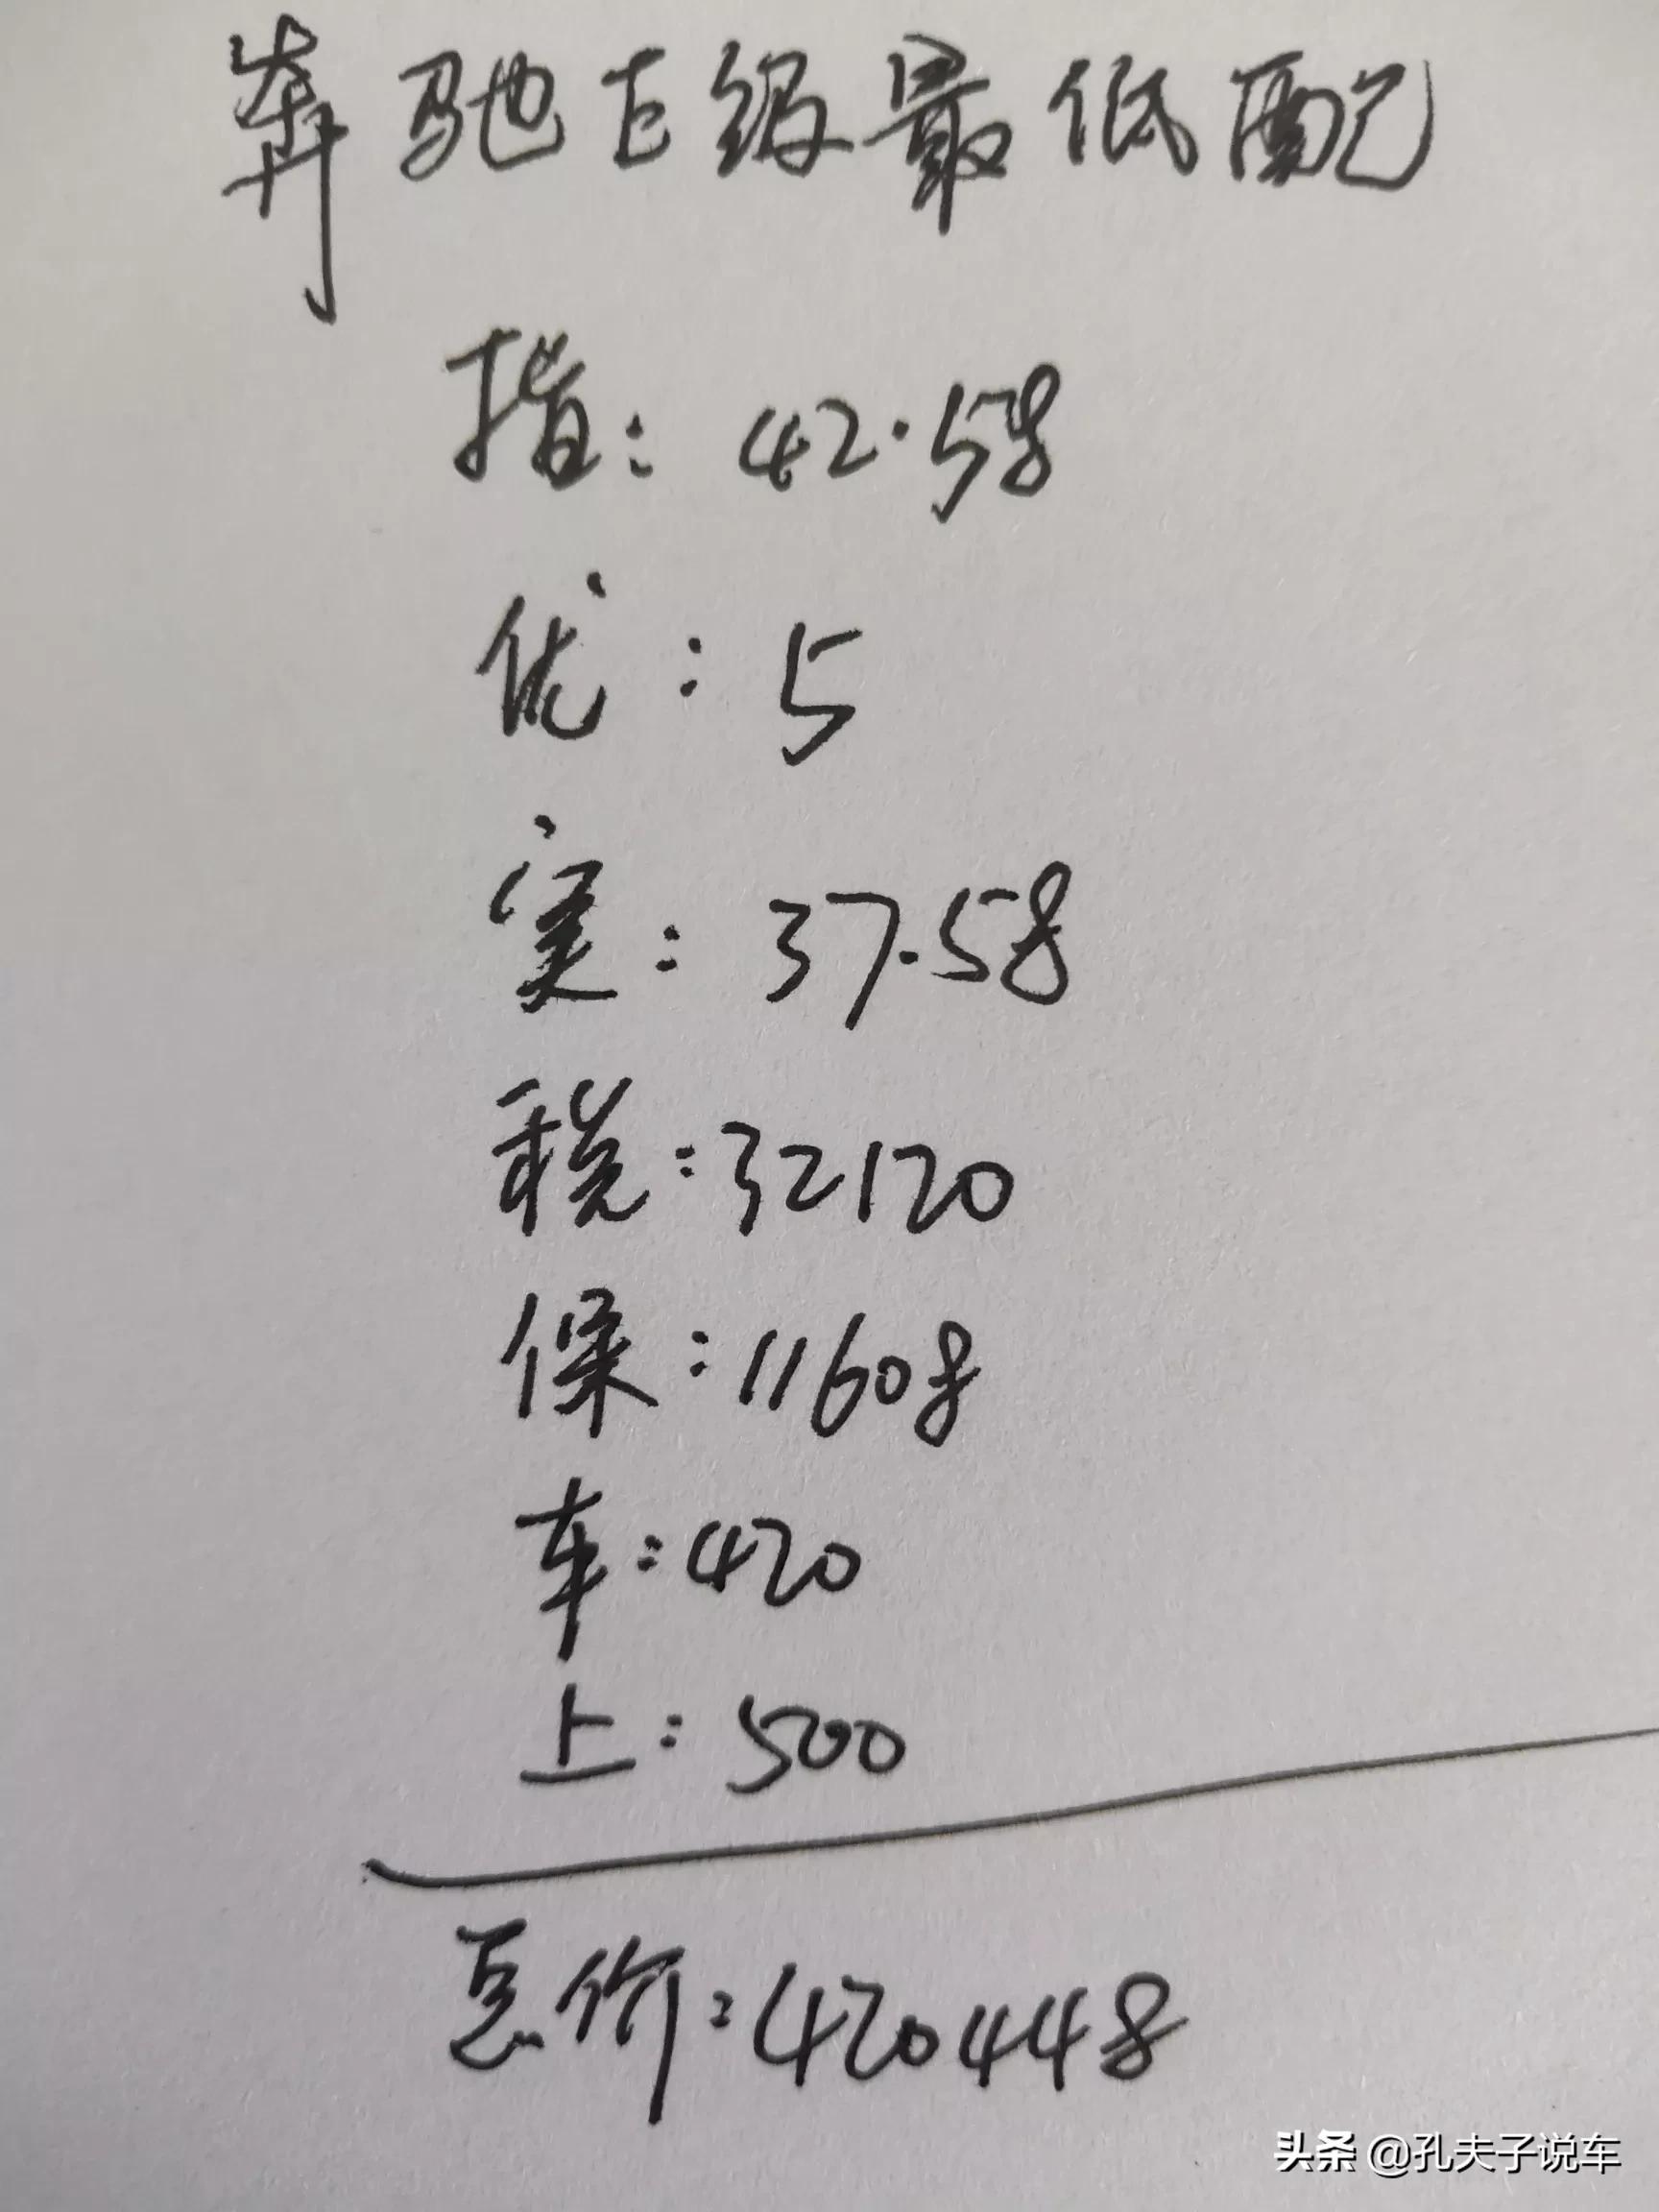 奔驰E级最低配
指：42.58
优：5
实：37.58
税：32120
保：11608
车：420
上：500
总价：420448
头条 @孔夫子说车